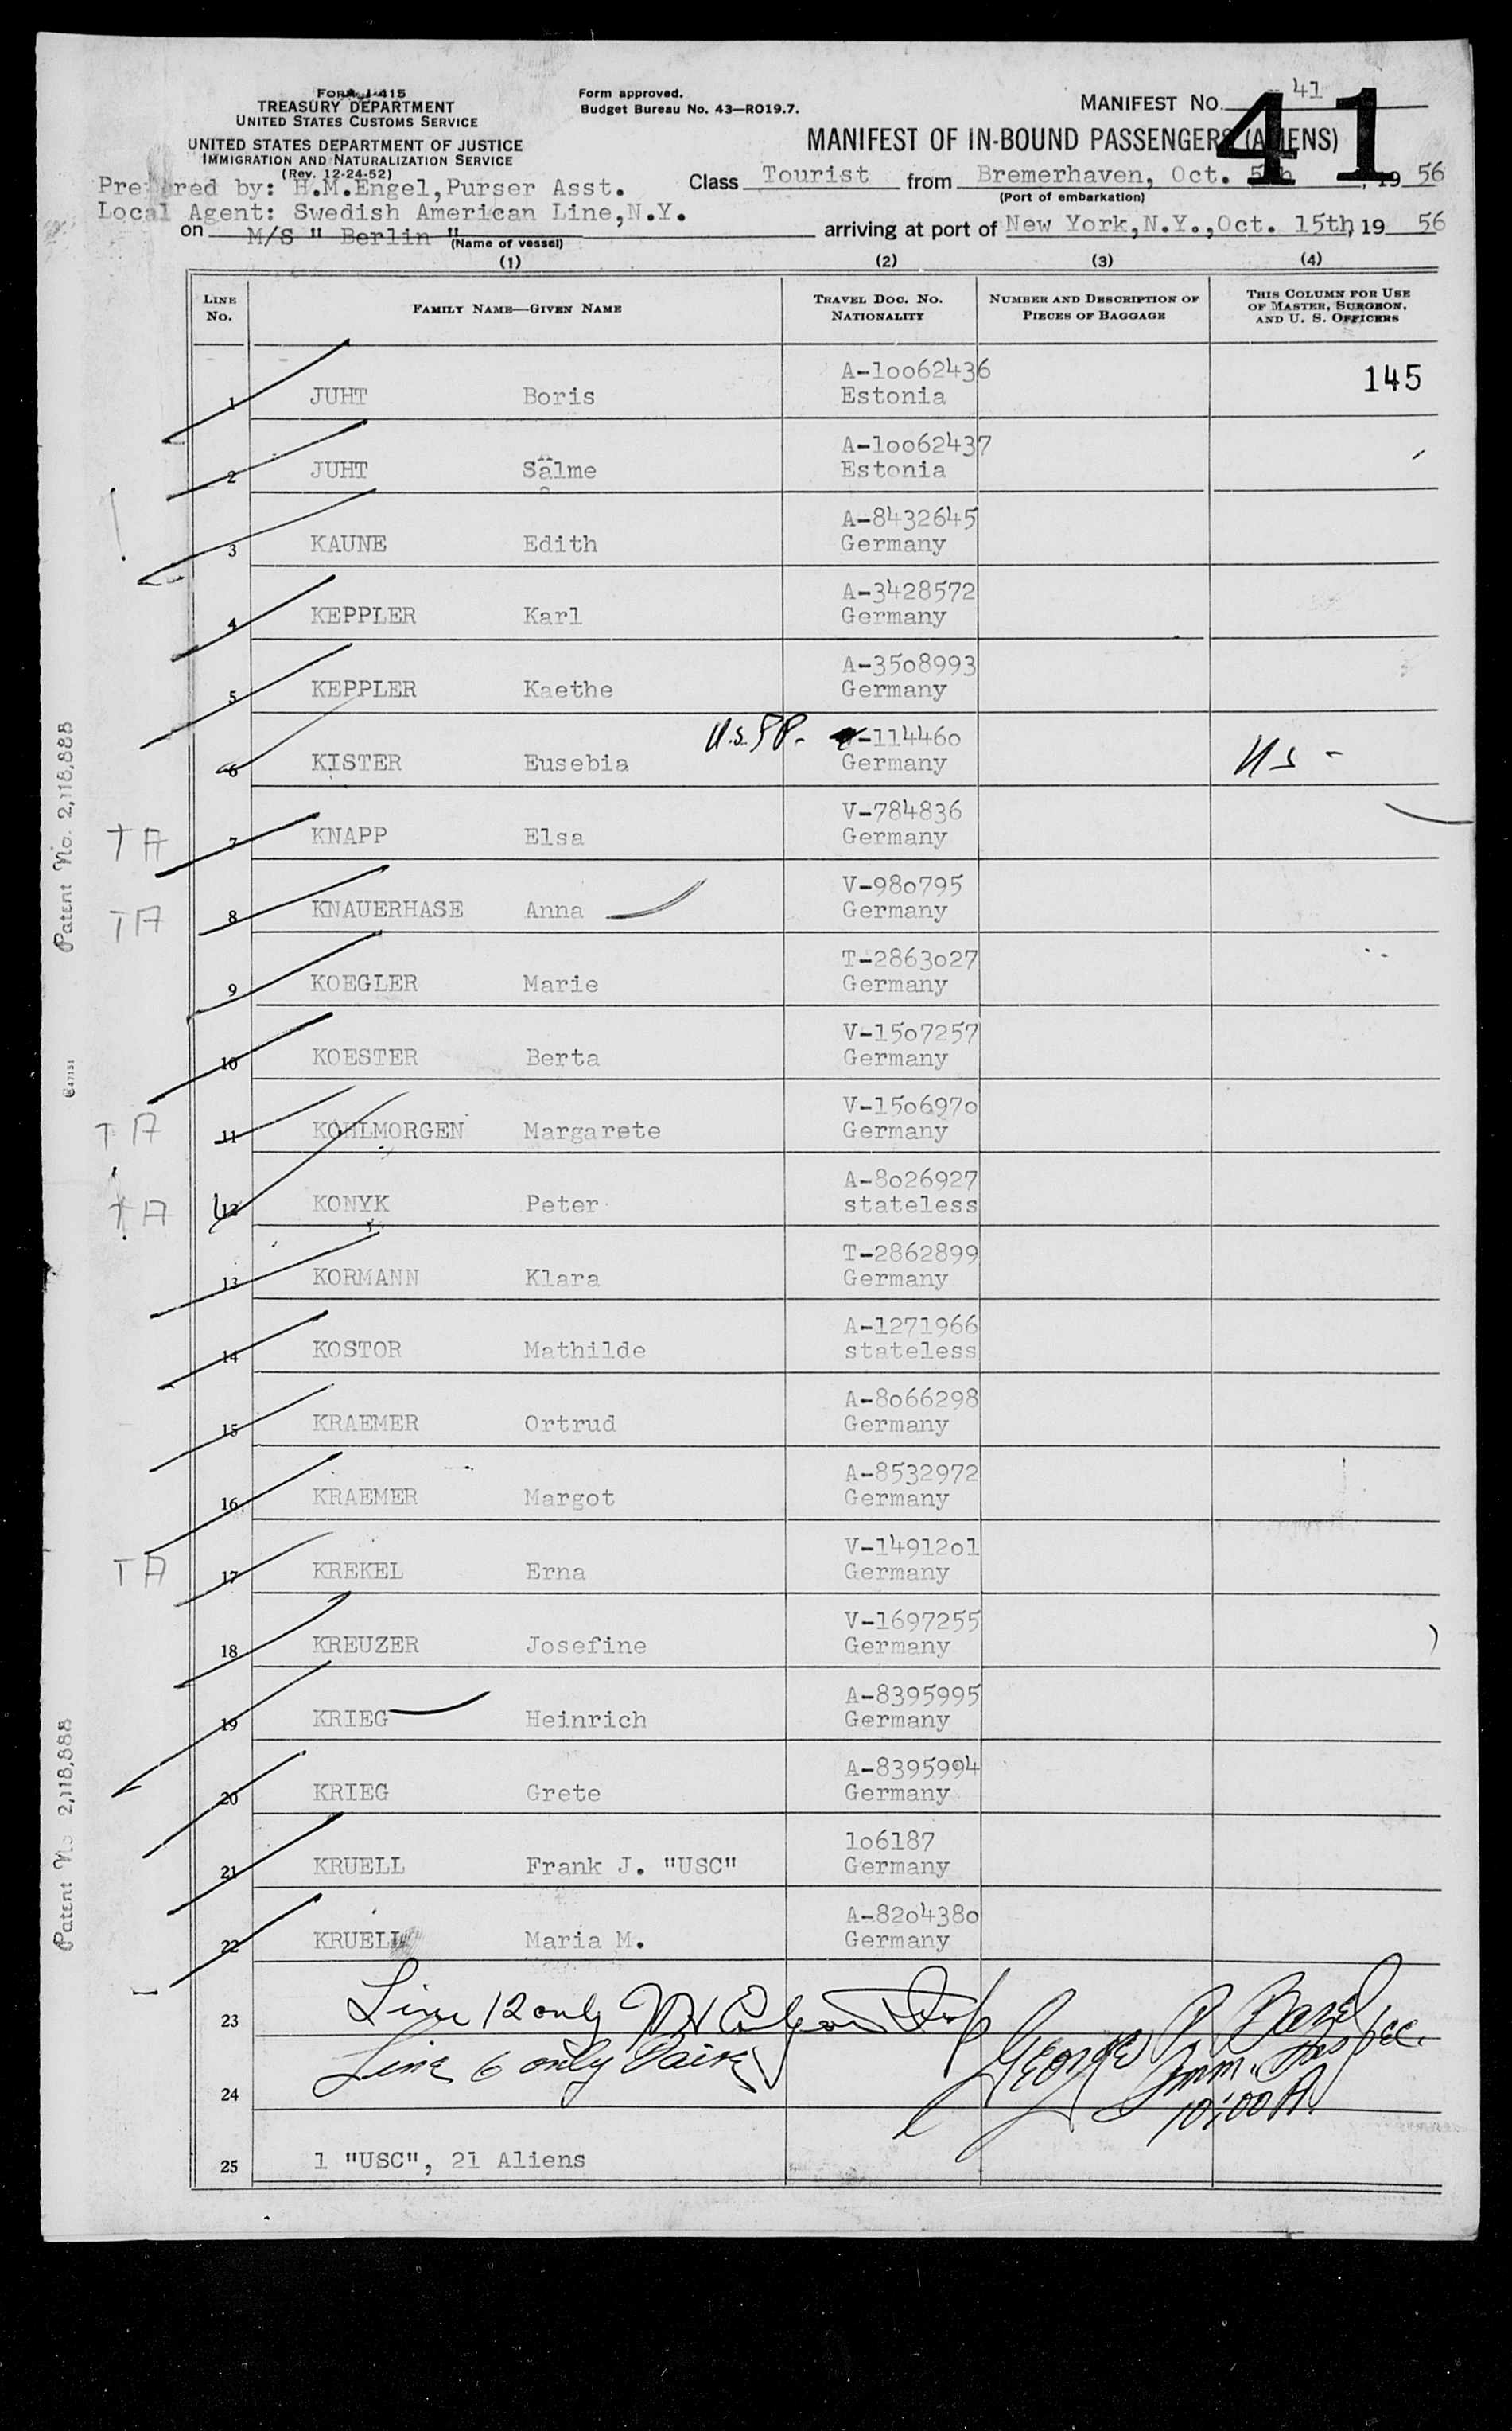 FORM I-415
TREASURY DEPARTMENT
UNITED STATES CUSTOMS SERVICE
UNITED STATES DEPARTMENT OF JUSTICE
IMMIGRATION AND NATURALIZATION SERVICE
(Rev. 12-24-52)
Form approved.
Budget Bureau No. 43—RO19.7.
MANIFEST NO. 41
41
MANIFEST OF IN-BOUND PASSENGERS (ALIENS)
Prepared by: H.M.Engel,Purser Asst.
Class Tourist from Bremerhaven, Oct. 5th, 19 56
(Port of embarkation)
Local Agent: Swedish American Line,N.Y.
on M/S " Berlin "
(Name of vessel)
arriving at port of New York,N.Y.,Oct. 15th, 19 56
(1) (2) (3) (4)
LINE NO.
FAMILY NAME—GIVEN NAME
TRAVEL DOC. NO. NATIONALITY
NUMBER AND DESCRIPTION OF PIECES OF BAGGAGE
THIS COLUMN FOR USE OF MASTER, SURGEON, AND U. S. OFFICERS
A-10062436 145
1 JUHT Boris Estonia
A-10062437
2 JUHT Salme Estonia
A-8432645
3 KAUNE Edith Germany
A-3428572
4 KEPPLER Karl Germany
A-3508993
5 KEPPLER Kaethe Germany
U.S.PP. -114460
6 KISTER Eusebia Germany US -
V-784836
TA 7 KNAPP Elsa Germany
V-980795
TA 8 KNAUERHASE Anna Germany
T-2863027
9 KOEGLER Marie Germany
V-1507257
10 KOESTER Berta Germany
V-1506970
TA 11 KOHLMORGEN Margarete Germany
A-8026927
TA 12 KONYK Peter stateless
T-2862899
13 KORMANN Klara Germany
A-1271966
14 KOSTOR Mathilde stateless
A-8066298
15 KRAEMER Ortrud Germany
A-8532972
16 KRAEMER Margot Germany
V-1491201
TA 17 KREKEL Erna Germany
V-1697255
18 KREUZER Josefine Germany
A-8395995
19 KRIEG Heinrich Germany
A-8395994
20 KRIEG Grete Germany
106187
21 KRUELL Frank J. "USC" Germany
A-8204380
22 KRUELL Maria M. Germany
23 Line 12 only
George P. Bazel
Line 6 only
Imm. Inspec.
24
10:00 A.
25 1 "USC", 21 Aliens
Patent No. 2,118,888
Patent No 2,118,888